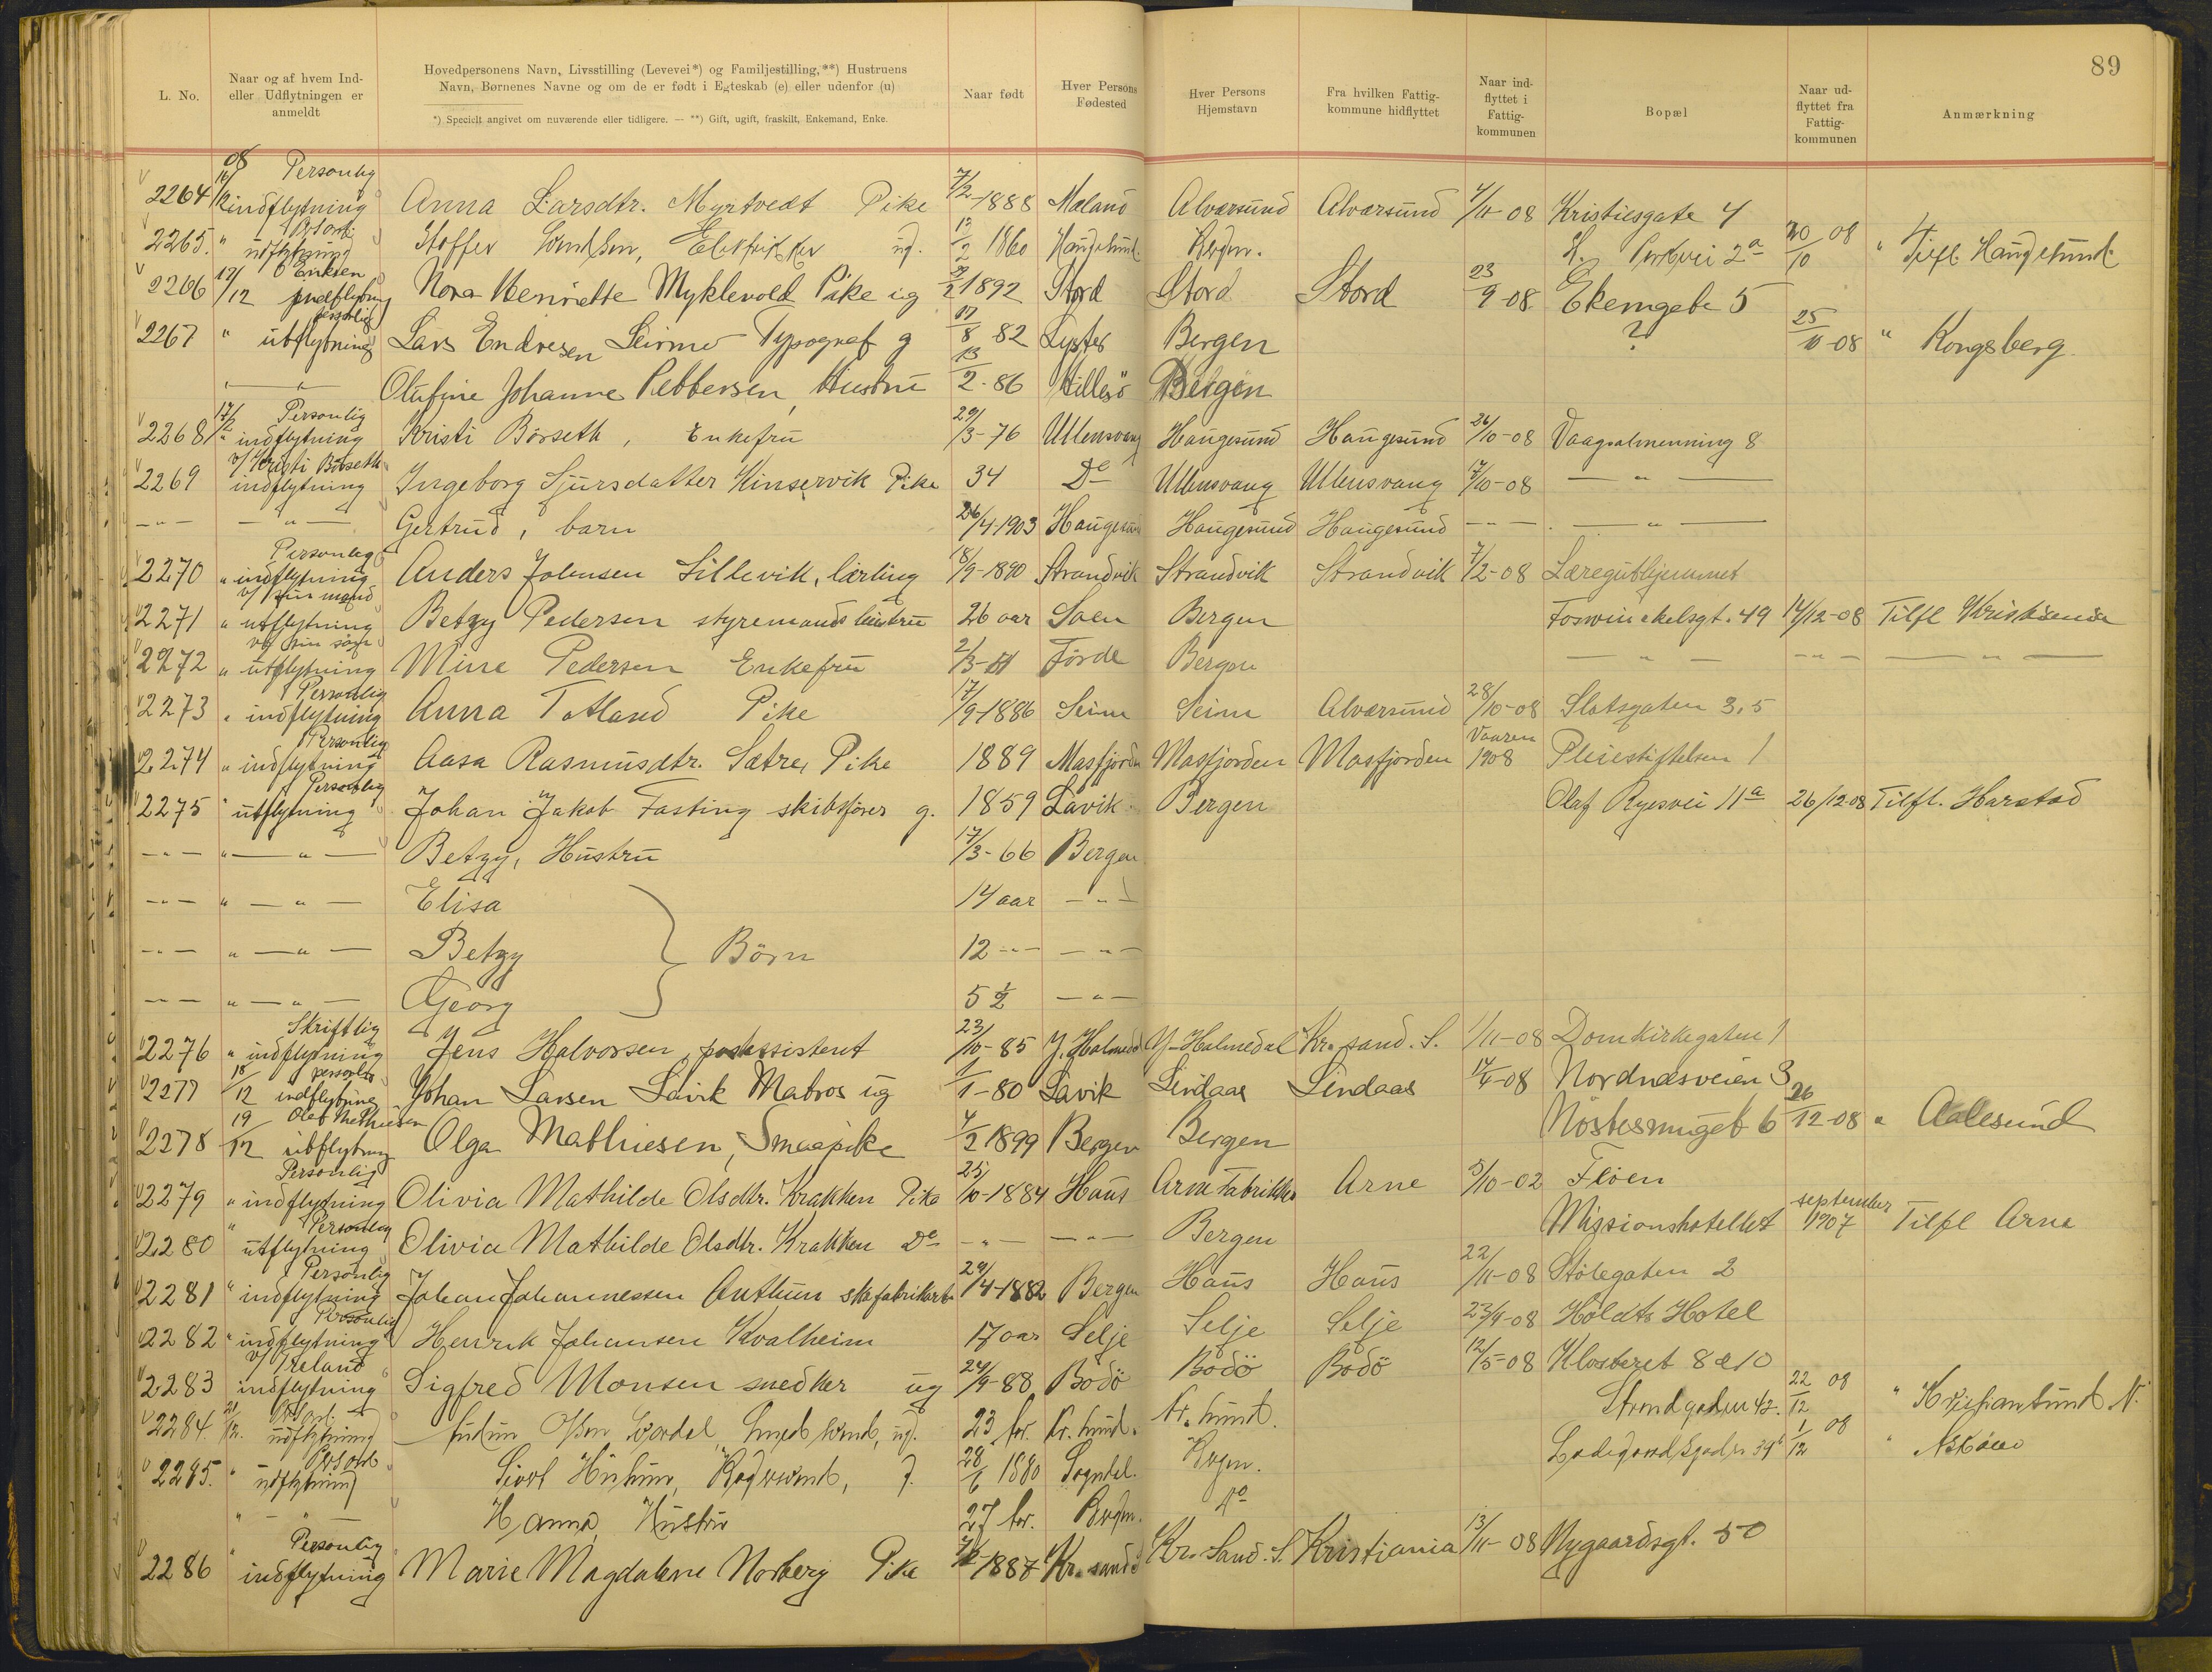 89
L. No.
Naar og af hvem Ind- eller Udflytningen er anmeldt
Hovedpersonens Navn, Livsstilling (Levevei*) og Familjestilling,**) Hustruens Navn, Børnenes Navne og om de er født i Egteskab (e) eller udenfor (u)
*) Specielt angivet om nuværende eller tidligere. — **) Gift, ugift, fraskilt, Enkemand, Enke.
Naar født
Hver Persons Fødested
Hver Persons Hjemstavn
Fra hvilken Fattig- kommune hidflyttet
Naar ind- flyttet i Fattig- kommunen
Bopæl
Naar ud- flyttet fra Fattig- kommunen
Anmærkning
08 Personlig
2264 indflytning Anna Larsdtr. Myrtvedt Pike 7/2-1888 Mæland Alværsund Alværsund 4/11-08 Kristiesgate 4
2265. " udflytning Stoffer Svendsen, Elektriker ug. 12/2 1860 Haugesund Bergen. 2a 20/10 08 " Tilfl. Haugesund
Eriksen
2266 17/12 indflytning Nora Henriette Myklevold Pike ug 2/2 1892 Stord Stord Stord 23/9-08 Ekemgate 5
personlig
2267 " utflytning Lars Endresen Leirmo Typograf g 17/8 82 Lyster Bergen ? 25/10-08 " Kongsberg
— " — Olufine Johanne Pettersen, Hustru 13/2-86 Hillesö Bergen
17/12 Personlig
2268 " indflytning Kristi Börseth, Enkefru 29/3-76 Ullensvang Haugesund Haugesund 26/10-08 Vaagsalmenning 8
v/ Kristi Börseth
2269 indflytning Ingeborg Sjursdatter Kinservik Pike 34 Do Ullensvang Ullensvang 7/10-08 — " —
— " — — " — Gertrud, barn 26/4-1903 Haugesund Haugesund Haugesund — " — — " —
Personlig
2270 " indflytning Anders Johnsen Lillevik, lærling 18/9-1890 Strandvik Strandvik Strandvik 7/2-08 Læreguthjemmet
v/ sin mand
2271 " utflytning Betzy Pedersen styremands hustru 26 aar Bergen Foswinckelsgt. 49 14/12-08 Tilfl
v/ sin sön
2272 " utflytning Mine Pedersen Enkefru 2/3-51 Förde Bergen — " — — " — — " —
Personlig
2273 " indflytning Anna Totland Pike 17/9-1886 Seim Seim Alværsund 28/10-08 Slotsgaten 3.5
Personlig
2274 " indflytning Aasa Rasmusdtr. Sætre, Pike 1889 Masfjorden Masfjorden Masfjorden Vaaren 1908 Pleiestiftelsen 1
Personlig
2275 " utflytning Johan Jakob Fasting skibsfører g. 1859 Lavik Bergen Olaf Ryesvei 11a 26/12-08 Tilfl. Harstad
— " — " — " — Betzy, Hustru 17/3-66 Bergen
— " — " — " — Elisa 14 aar — " —
— " — " — " — Betzy } Börn 12 — " — — " —
— " — " — " — Georg 5 1/2 — " —
Skriftlig
2276 " indflytning Jens Halvorsen postassistent 23/10-85 Y. Holmedal Y. Holmedal Kr.sand. S. 1/11-08 Domkirkegaten 1
personlig
2277 18/12 indflytning Johan Larsen Lavik Matros ug 1/1-80 Lavik Lindaas Lindaas 14/4-08 Nordnæsveien 3
Olaf Mathiesen
2278 19/12 utflytning Olga Mathiesen, Smaapike 4/2 1899 Bergen Bergen Nöstesmuget 6 26/12-08 " Aalesund
Personlig
2279 " indflytning Olivia Mathilde Olsdtr. Krakken Pike 25/10-1884 Haus Arne Fabrikker Arne 5/10-02 Flöen
" Personlig
2280 utflytning Olivia Mathilde Olsdtr. Krakken Do — " — — " — Bergen Missionshotellet september 1907 Tilfl Arne
Personlig
2281 " indflytning Johan Johannessen Anthun skofabrikarb 29/4-1882 Bergen Haus Haus 22/11-08 Stölegaten 2
Personlig
2282 " indflytning Henrik Johansen Kvalheim 17 aar Selje Selje Selje 23/9-08 Holdts Hotel
v/ Ireland
2283 indflytning Sigfred Monsen snedker ug 24/9-88 Bodö Bodö Bodö 12/5-08 Klosteret 8 a 10
2284 21/12. udflytning Olsen ug. 23 Aar. Kr. sund. Kr. sund. Strandgaden 42. 22/12 08 " Kristiansund N.
2285. " udflytning Sivert g. 28/6 1880 Sogndal. Bergen. Ladegaardsgaden 34b 1/12 08 " Askøen
" — " — Hanna Hustru 27 Aar. Bergen. Do
" Personlig
2286 indflytning Marie Magdalene Norberg Pike 1887 Kr. sand Kr. Sand. S. Kristiania 13/11-08 Nygaardsgt. 50